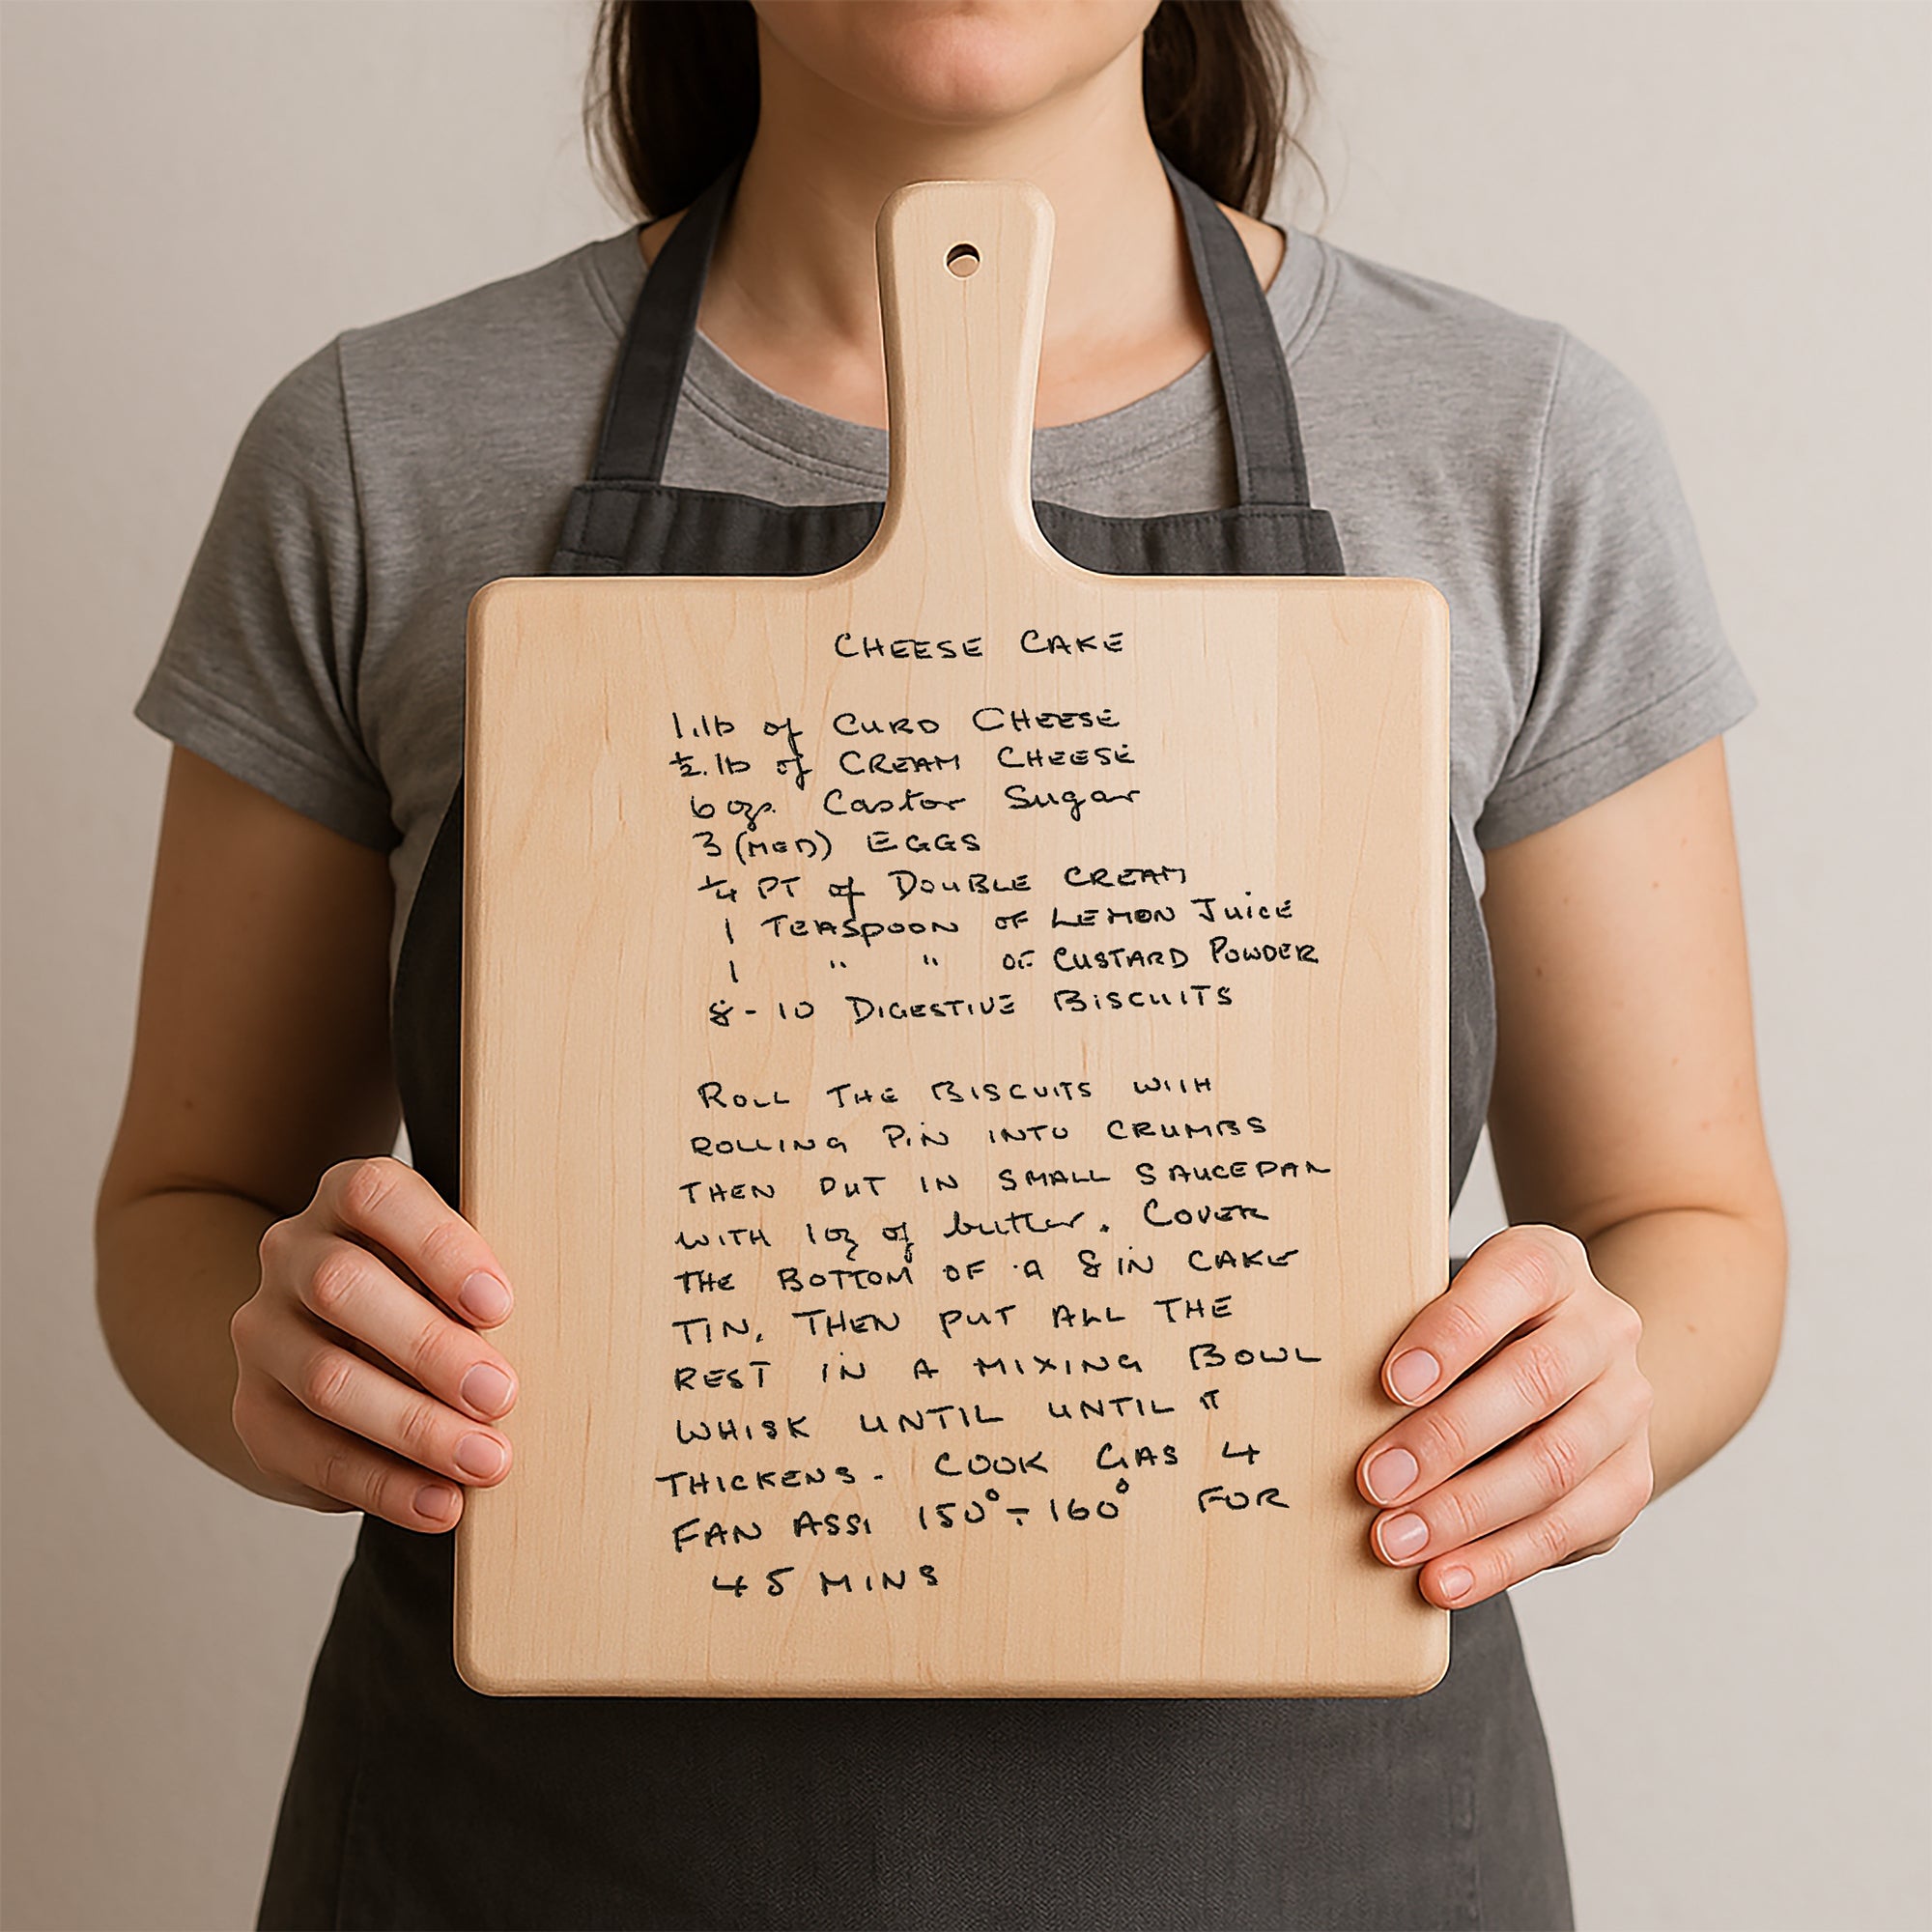 CHEESE CAKE
1.lb of CURD CHEESE
½.lb of CREAM CHEESE
6 ozs. Castor Sugar
3 (MED) EGGS
¼ PT of DOUBLE CREAM
1 TEASPOON OF LEMON JUICE
1 " " OF CUSTARD POWDER
8-10 DIGESTIVE BISCUITS
ROLL THE BISCUITS WITH
ROLLING PIN INTO CRUMBS
THEN PUT IN SMALL SAUCEPAN
WITH 1oz of butter. COVER
THE BOTTOM OF A 8 IN CAKE
TIN, THEN PUT ALL THE
REST IN A MIXING BOWL
WHISK UNTIL UNTIL IT
THICKENS. COOK GAS 4
FAN ASSI 150° - 160° FOR
45 MINS